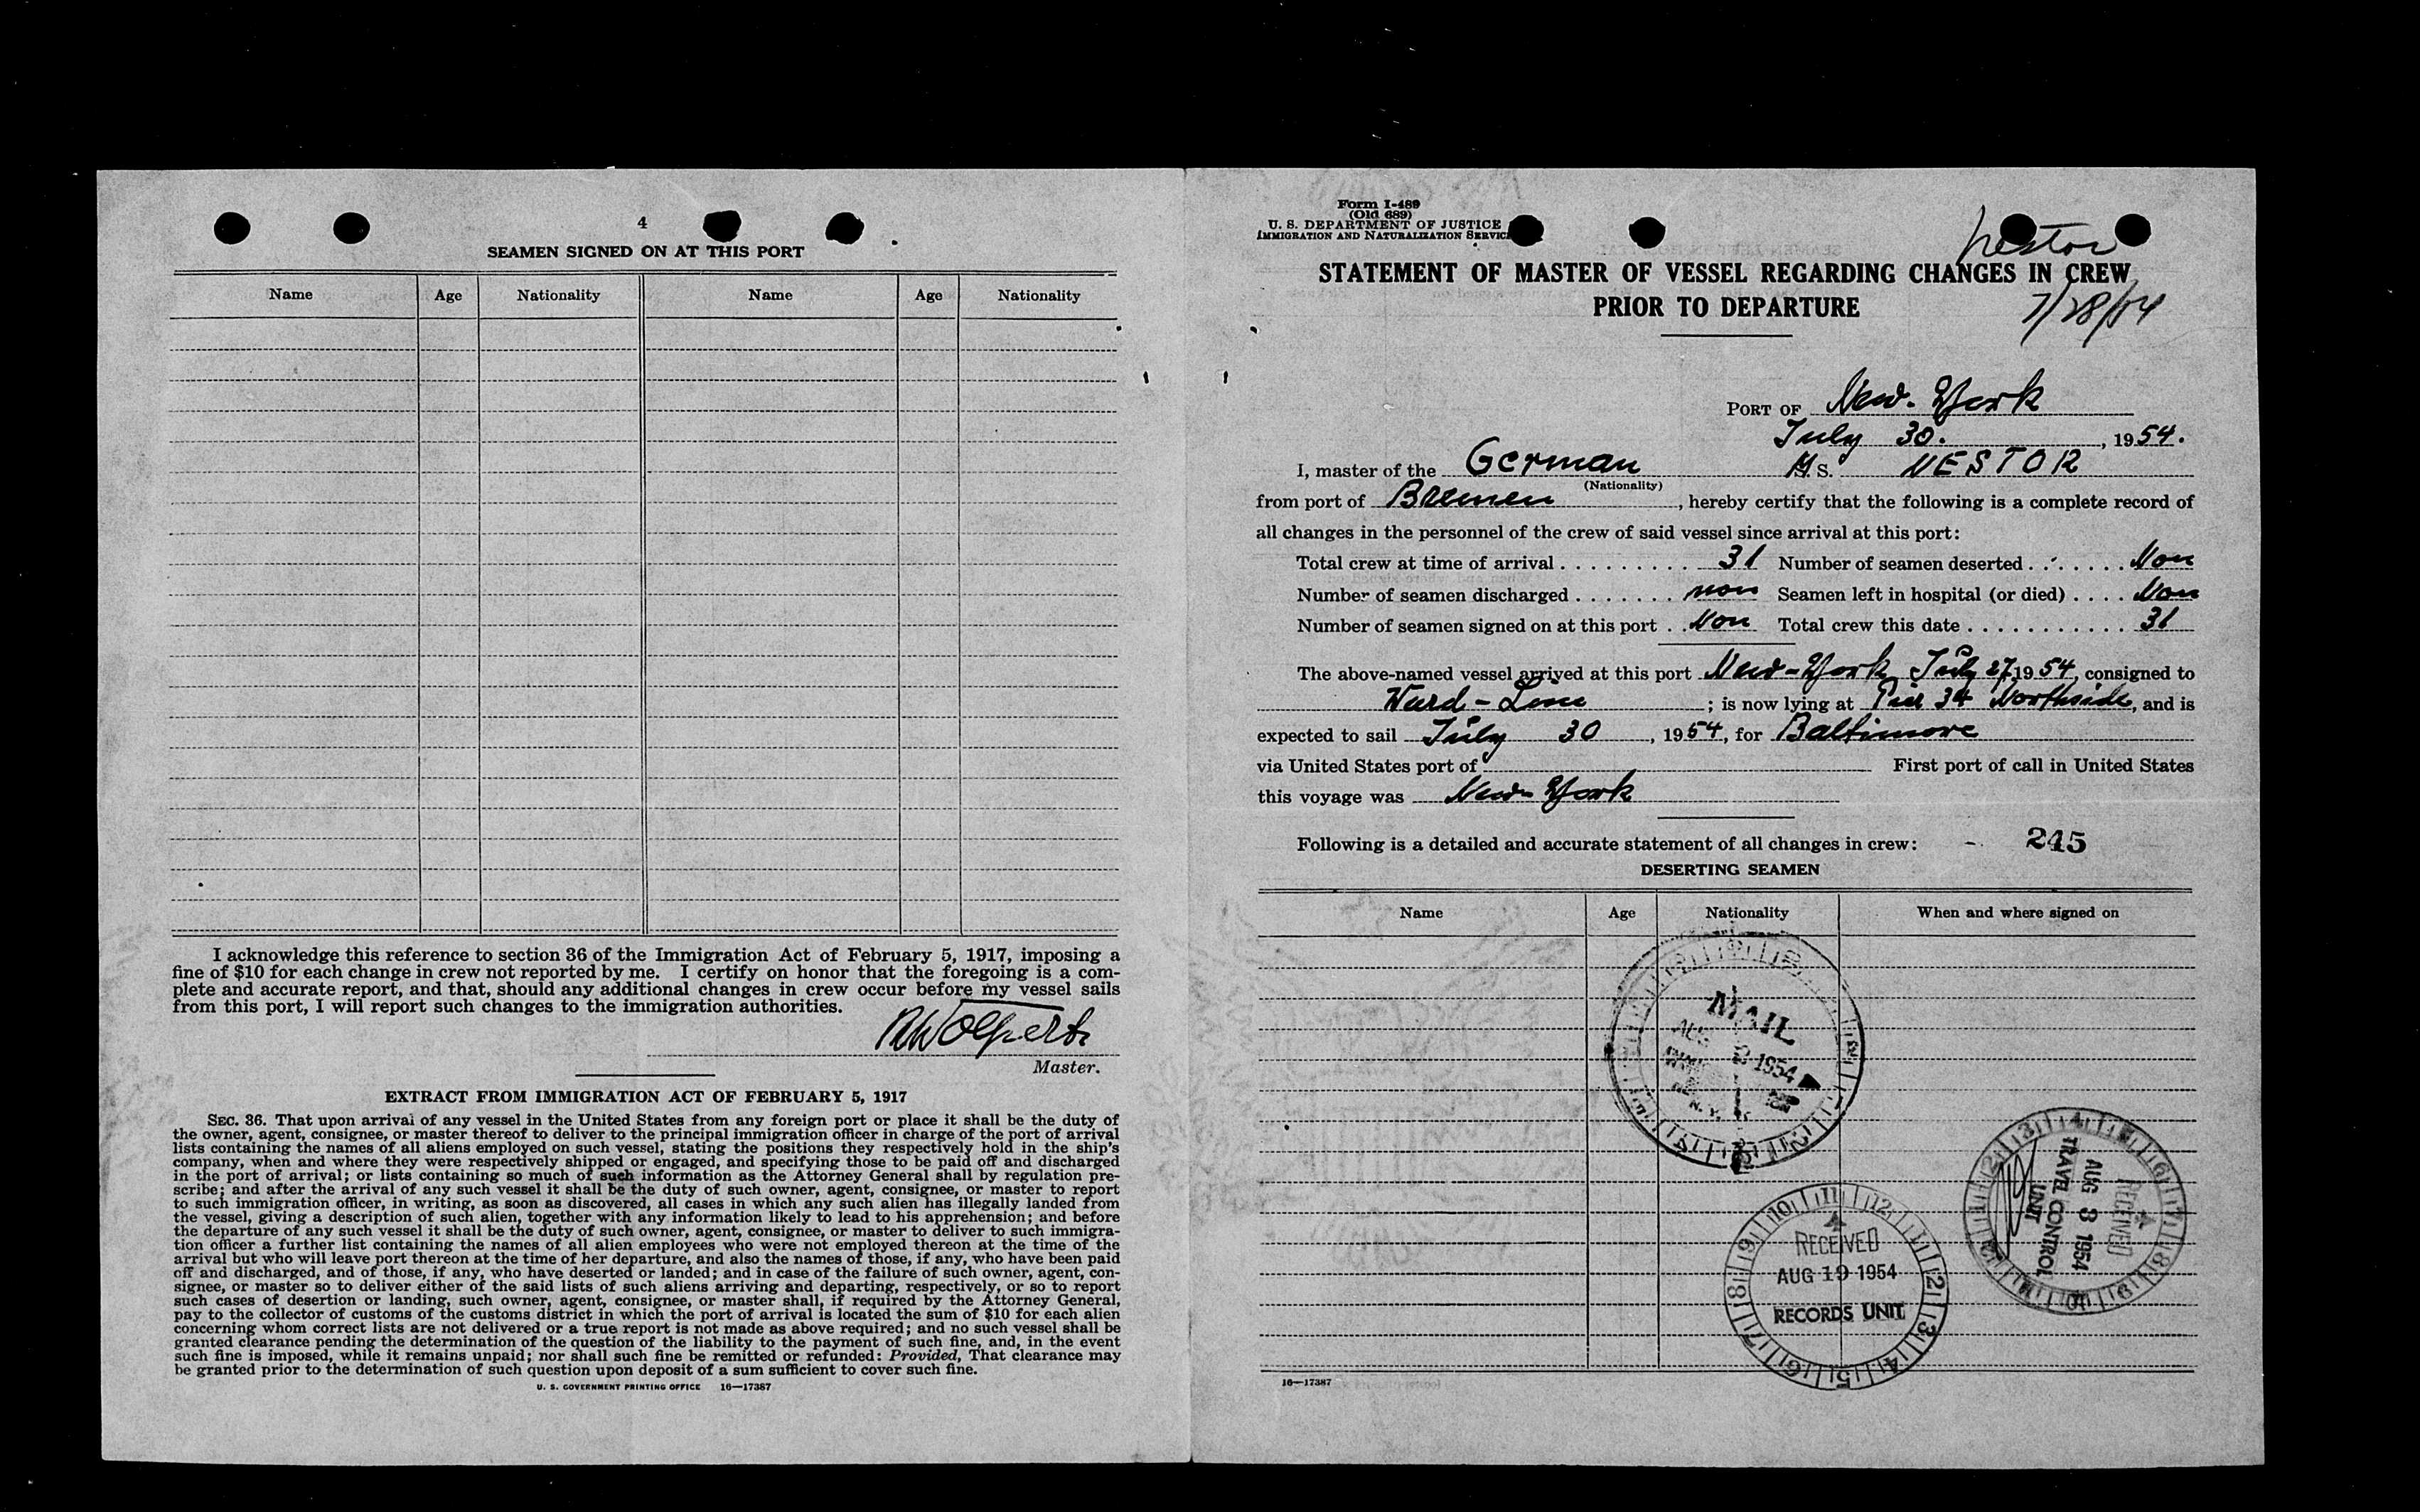 4
SEAMEN SIGNED ON AT THIS PORT
Name Age Nationality Name Age Nationality
I acknowledge this reference to section 36 of the Immigration Act of February 5, 1917, imposing a
fine of $10 for each change in crew not reported by me. I certify on honor that the foregoing is a com-
plete and accurate report, and that, should any additional changes in crew occur before my vessel sails
from this port, I will report such changes to the immigration authorities.
RWolperts
Master.
EXTRACT FROM IMMIGRATION ACT OF FEBRUARY 5, 1917
SEC. 36. That upon arrival of any vessel in the United States from any foreign port or place it shall be the duty of
the owner, agent, consignee, or master thereof to deliver to the principal immigration officer in charge of the port of arrival
lists containing the names of all aliens employed on such vessel, stating the positions they respectively hold in the ship's
company, when and where they were respectively shipped or engaged, and specifying those to be paid off and discharged
in the port of arrival; or lists containing so much of such information as the Attorney General shall by regulation pre-
scribe; and after the arrival of any such vessel it shall be the duty of such owner, agent, consignee, or master to report
to such immigration officer, in writing, as soon as discovered, all cases in which any such alien has illegally landed from
the vessel, giving a description of such alien, together with any information likely to lead to his apprehension; and before
the departure of any such vessel it shall be the duty of such owner, agent, consignee, or master to deliver to such immigra-
tion officer a further list containing the names of all alien employees who were not employed thereon at the time of the
arrival but who will leave port thereon at the time of her departure, and also the names of those, if any, who have been paid
off and discharged, and of those, if any, who have deserted or landed; and in case of the failure of such owner, agent, con-
signee, or master so to deliver either of the said lists of such aliens arriving and departing, respectively, or so to report
such cases of desertion or landing, such owner, agent, consignee, or master shall, if required by the Attorney General,
pay to the collector of customs of the customs district in which the port of arrival is located the sum of $10 for each alien
concerning whom correct lists are not delivered or a true report is not made as above required; and no such vessel shall be
granted clearance pending the determination of the question of the liability to the payment of such fine, and, in the event
such fine is imposed, while it remains unpaid; nor shall such fine be remitted or refunded: Provided, That clearance may
be granted prior to the determination of such question upon deposit of a sum sufficient to cover such fine.
U. S. GOVERNMENT PRINTING OFFICE 16—17387
Form I-489
(Old 689)
U. S. DEPARTMENT OF JUSTICE
IMMIGRATION AND NATURALIZATION SERVICE
Nestor
STATEMENT OF MASTER OF VESSEL REGARDING CHANGES IN CREW
PRIOR TO DEPARTURE
7/28/54
PORT OF New-York
July 30. , 1954.
I, master of the German M. S. NESTOR
(Nationality)
from port of Bremen , hereby certify that the following is a complete record of
all changes in the personnel of the crew of said vessel since arrival at this port:
Total crew at time of arrival . . . . . . . . . . 31 Number of seamen deserted . . . . . . . . Non
Number of seamen discharged . . . . . . . non Seamen left in hospital (or died) . . . . Non
Number of seamen signed on at this port . . Non Total crew this date . . . . . . . . . . . . 31
The above-named vessel arrived at this port New-York July 27, 1954, consigned to
Ward-Line ; is now lying at Pier 34 Northside, and is
expected to sail July 30 , 1954, for Baltimore
via United States port of First port of call in United States
this voyage was New-York
Following is a detailed and accurate statement of all changes in crew: - 245
DESERTING SEAMEN
Name Age Nationality When and where signed on
MAIL
AUG 2 1954
N. Y.
RECEIVED
AUG 3 1954
TRAVEL CONTROL
UNIT
RECEIVED
AUG 19 1954
RECORDS UNIT
16—17387